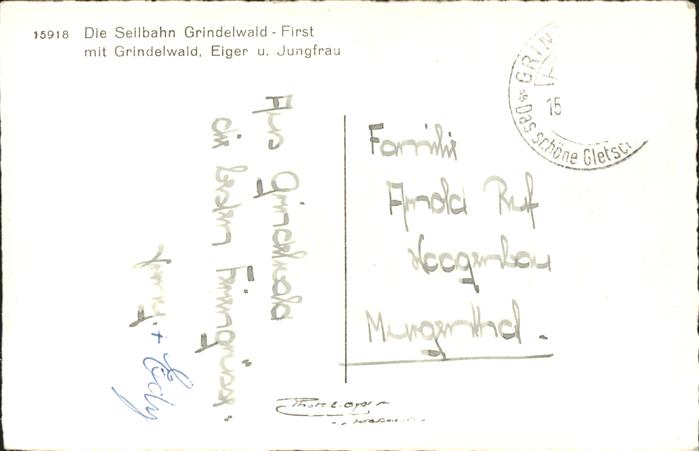 15918 Die Seilbahn Grindelwald - First
mit Grindelwald, Eiger u. Jungfrau
GRIN
15
Das schöne Gletsch
Aus Grindelwald
die besten Feriengrüsse
+ Cécily
Familie
Arnold Ruf
Murgenthal.